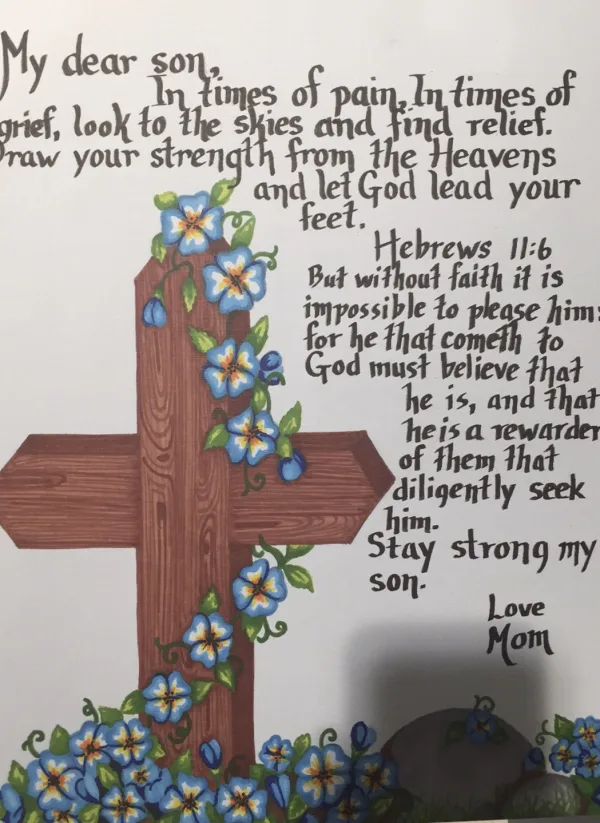 My dear son,
In times of pain, In times of
grief, look to the skies and find relief.
Draw your strength from the Heavens
and let God lead your
feet.
Hebrews 11:6
But without faith it is
impossible to please him:
for he that cometh to
God must believe that
he is, and that
he is a rewarder
of them that
diligently seek
him.
Stay strong my
son.
Love
Mom